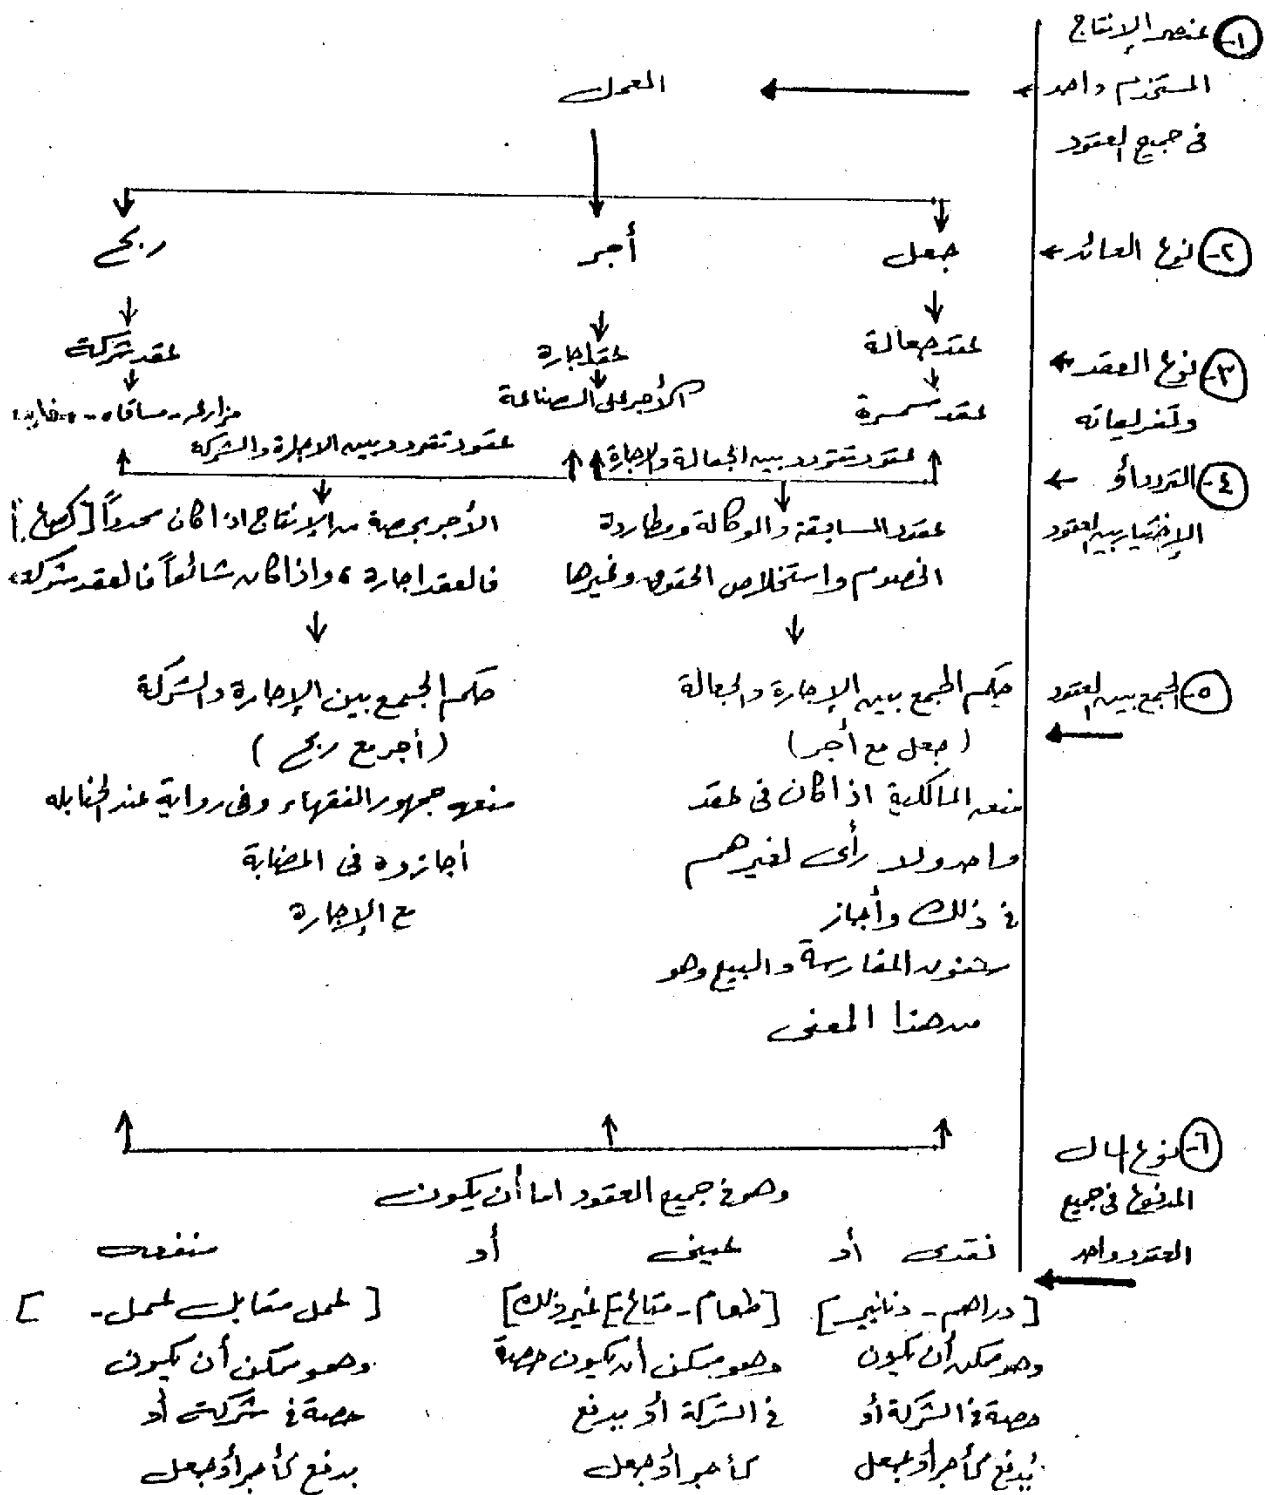 ١- عنصر الإنتاج
المستخدم واحد
في جميع العقود
العمل
٢- نوع العائد
جعل
أجر
ربح
٣- نوع العقد
وتفريعاته
عقد جعالة
عقد إجارة
عقد شركة
عقد سمسرة
الأجر على الصناعة
مزارعة - مساقاه - مضاربة
٤- التردد أو
الإختيار بين العقود
عقود تتردد بين الجعالة والإجارة
عقود تتردد بين الاجارة والشركة
عقود المسابقة والوكالة ومطاردة
الخصوم واستخلاص الحقوق وغيرها
الأجر بحصة من الإنتاج اذا كان محدداً [كصاع]
فالعقد اجارة، واذا كان شائعاً فالعقد شركة
٥- الجمع بين العقود
حكم الجمع بين الإجارة والجعالة
(جعل مع أجر)
منعه المالكية اذا كان في عقد
واحد ولا رأى لغيرهم
في ذلك وأجاز
سحنون المغارسة والبيع وهو
من هذا المعنى
حكم الجمع بين الإجارة والشركة
(أجر مع ربح)
منعه جمهور الفقهاء وفي رواية عند الحنابله
أجازوه في المضابة
مع الإجارة
٦- نوع المال
المدفوع في جميع
العقود واحد
وهو في جميع العقود اما أن يكون
نقدى أو عينى أو منفعة
[دراهم - دنانير] [طعام - متاع] غير ذلك] [عمل مقابل عمل - ]
وهو ممكن أن يكون
حصة في الشركة أو
يُدفع كأجر أو جعل
وهو ممكن أن يكون حصة
في الشركة أو يدفع
كأجر أو جعل
وهو ممكن أن يكون
حصة في شركة أو
يدفع كأجر أو جعل